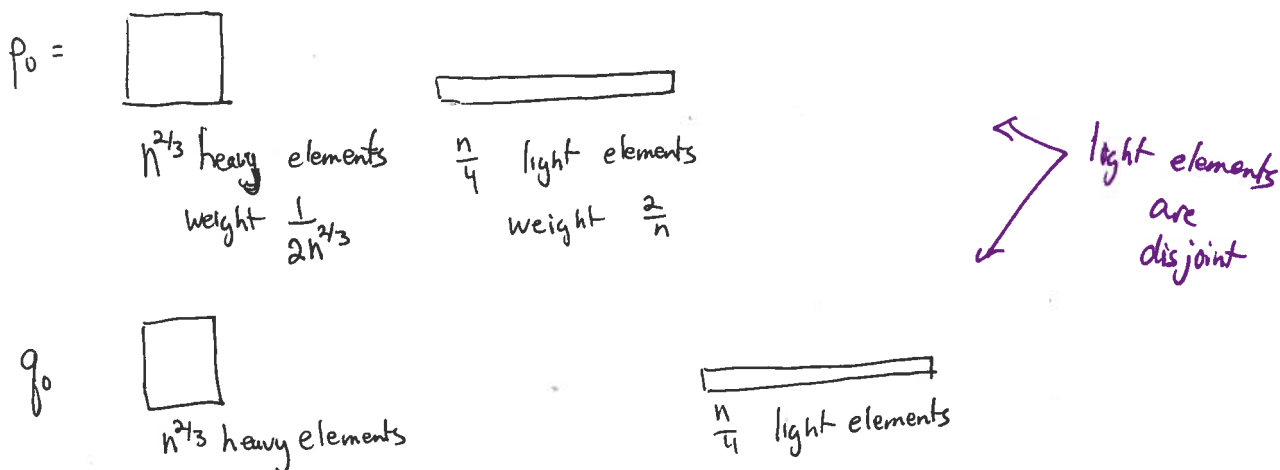 p₀ =
n^{2/3} heavy elements
weight \frac{1}{2n^{2/3}}
\frac{n}{4} light elements
weight \frac{2}{n}
light elements
are
disjoint
q₀
n^{2/3} heavy elements
\frac{n}{4} light elements